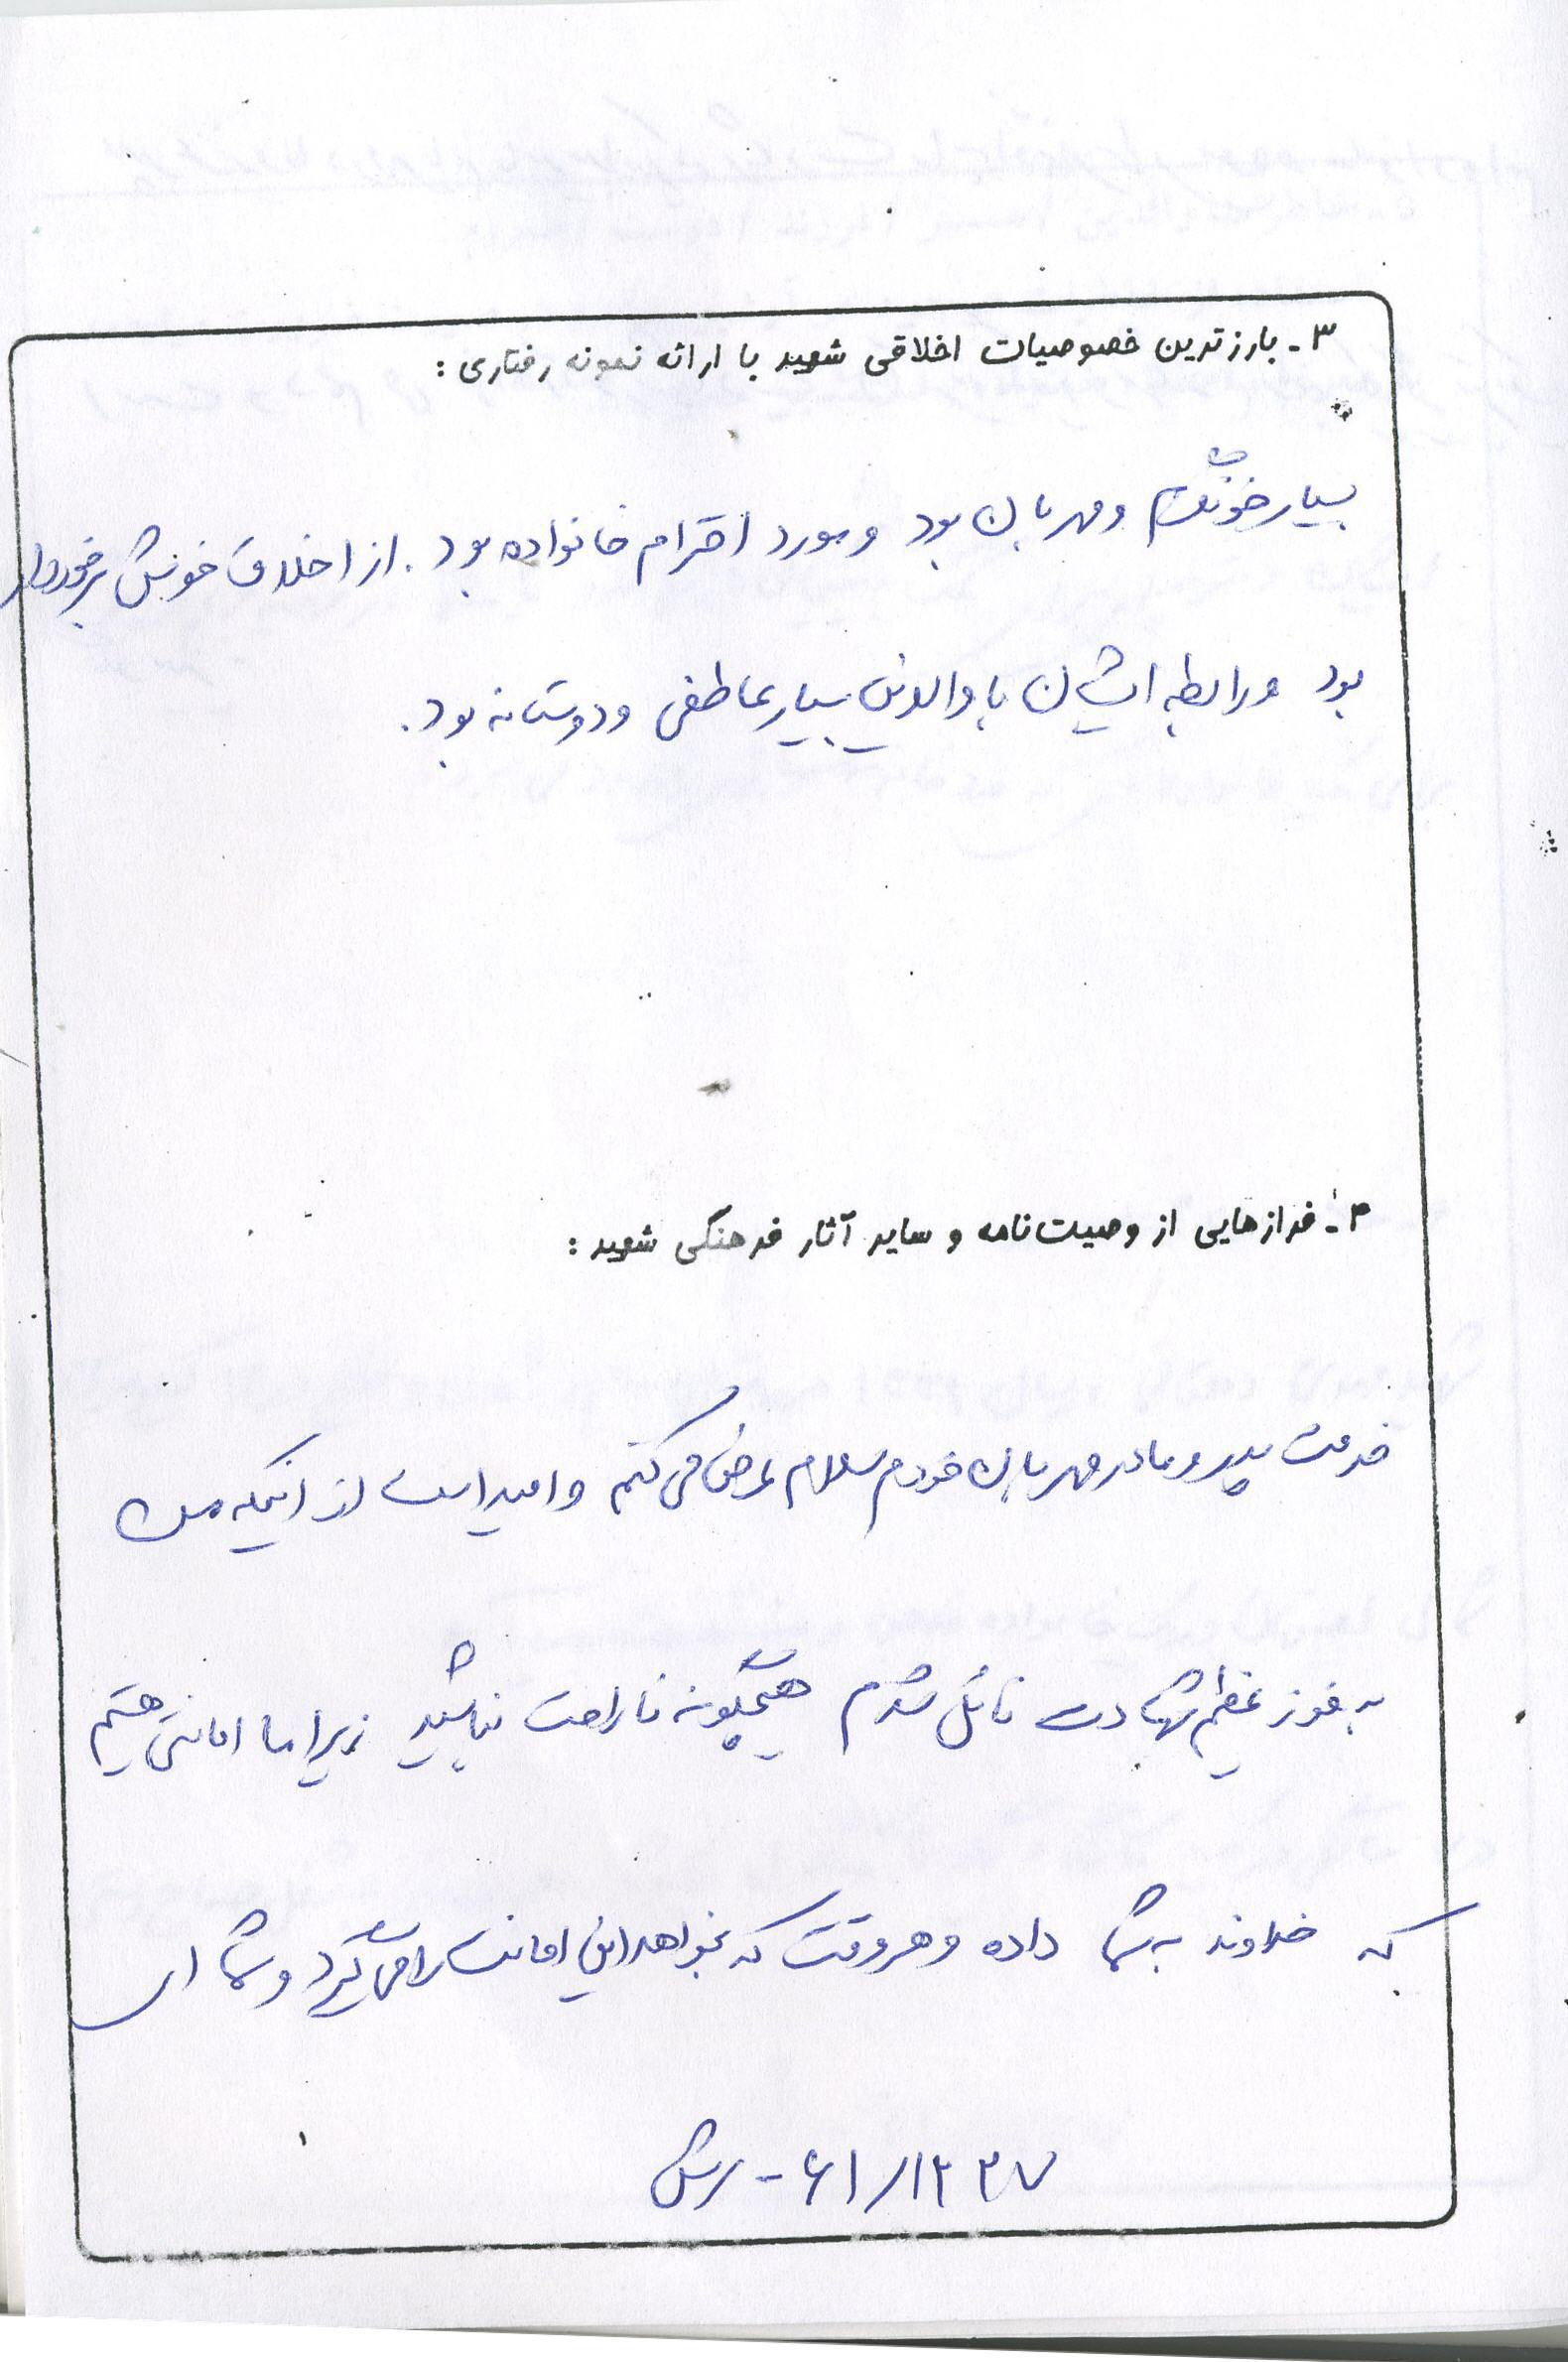 ۳- بارزترین خصوصیات اخلاقی شهید با ارائه نمونه رفتاری :
بسیار خونگرم و مهربان بود و مورد احترام خانواده بود . از اخلاق خوش برخوردار
بود و رابطه ایشان با والدین بسیار عاطفی و دوستانه بود .
۴- فرازهایی از وصیت‌نامه و سایر آثار فرهنگی شهید :
خدمت پدر و مادر مهربان خودم سلام عرض می کنم و امید است از اینکه من
به فوز عظیم شهادت نائل شدم هیچگونه ناراحت نباشید زیرا ما امانتی هستیم
که خداوند به شما داده و هر وقت که بخواهد این امانت را می گیرد و شما ای
۶۱/۱۲۳۷ -